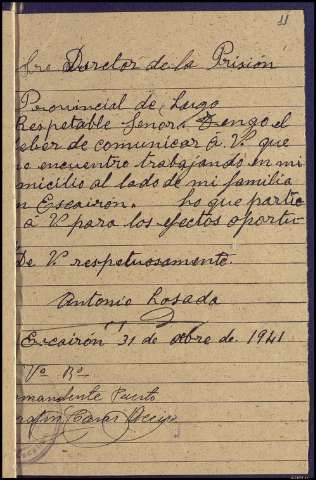 11
Sre Director de la Prisión
Provincial de Lugo
Respetable Señor. Tengo el
eber de comunicar á V. que
o encuentro trabajando en mi
micilio al lado de mi familia
n Escairón. Lo que partic
a V para los efectos oportu
De V. respetuosamente.
Antonio Losada
Escairón 31 de obre de 1941
Vº Bº
omandante Puesto